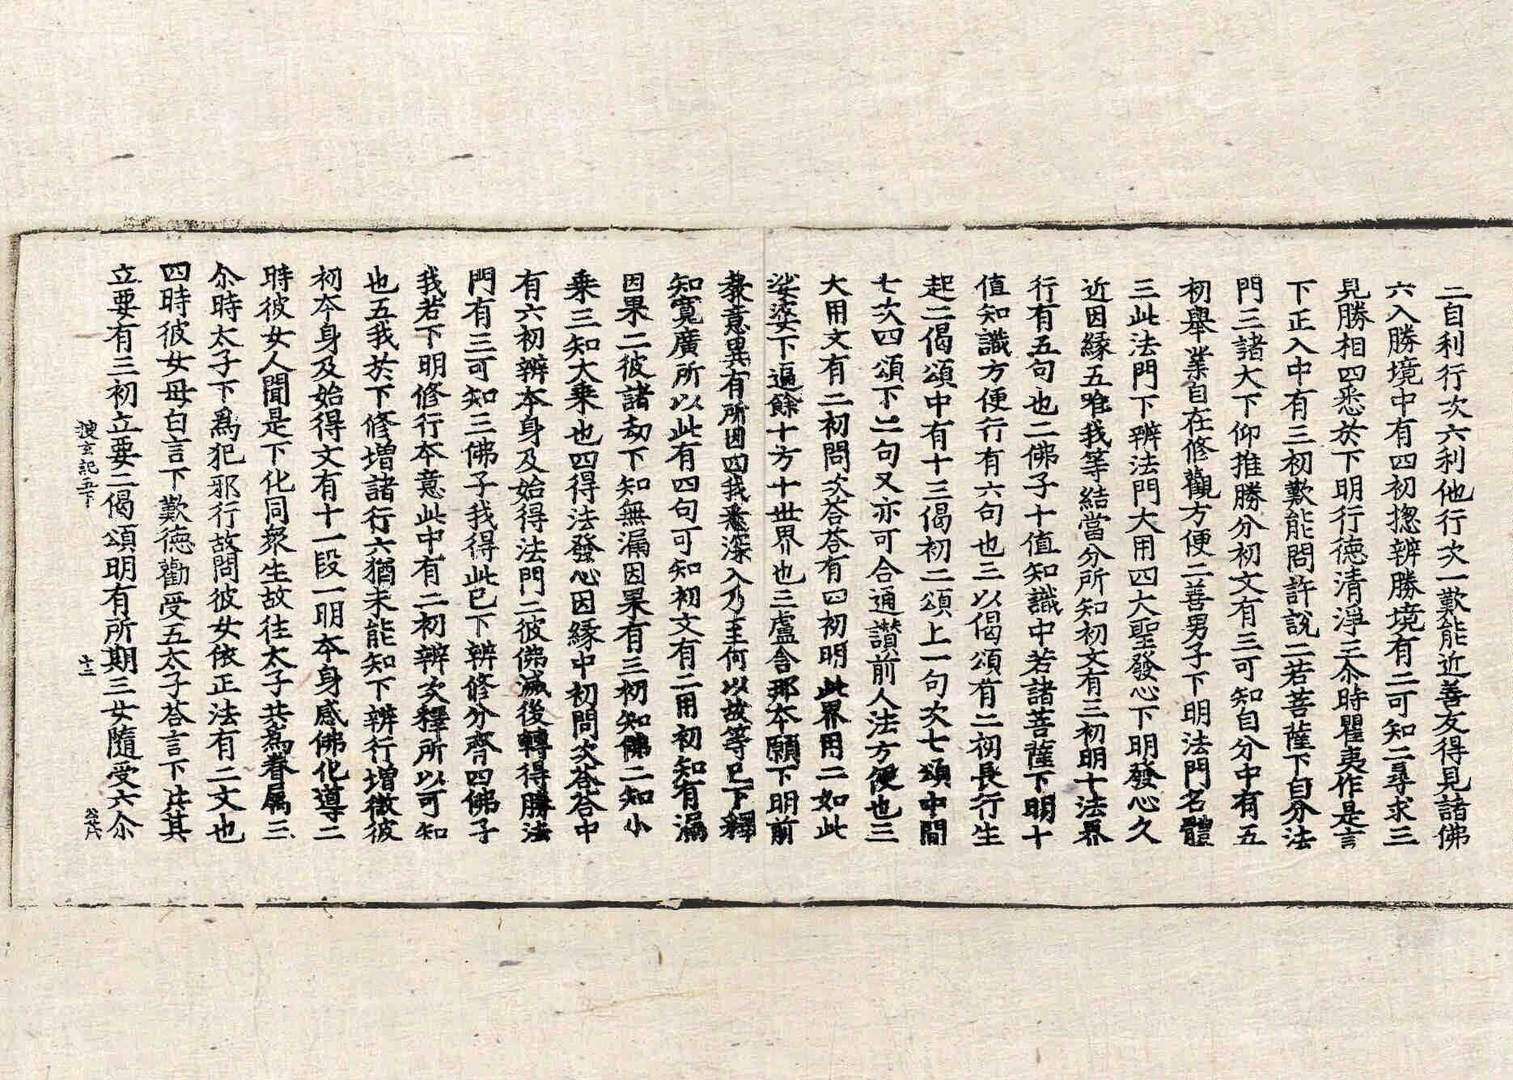 二自利行次六利他行次一歎能近善友得見諸佛
六入勝境中有四初揔辨勝境有二可知二尋求三
見勝相四悉於下明行德清淨三尒時瞿夷作是言
下正入中有三初歎能問許說二若菩薩下自分法
門三諸大下仰推勝分初文有三可知自分中有五
初舉業自在修觀方便二善男子下明法門名體
三此法門下辨法門大用四大聖發心下明發心久
近因緣五唯我等結當分所知初文有三初明十法界
行有五句也二佛子十值知識中若諸菩薩下明十
值知識方便行有六句也三以偈頌有二初長行生
起二偈頌中有十三偈初二頌上一句次七頌中間
七次四頌下二句又亦可合通讃前人法方便也三
大用文有二初問次荅荅有四初明此界用二如此
娑婆下遍餘十方十世界也三盧舍那本願下明前
教意異有所因四我悉深入乃至何以故等已下釋
知寬廣所以此有四句可知初文有二用初知有漏
因果二彼諸劫下知無漏因果有三初知佛二知小
乗三知大乗也四得法發心因緣中初問次荅荅中
有六初辨本身及始得法門二彼佛滅後轉得勝法
門有三可知三佛子我得此已下辨修分齊四佛子
我若下明修行本意此中有二初辨次釋所以可知
也五我於下修増諸行六猶未能知下辨行増微彼
初本身及始得文有十一段一明本身感佛化導二
時彼女人聞是下化同眾生故往太子共為眷屬三
尒時太子下爲犯邪行故問彼女依正法有二文也
四時彼女母白言下歎德勸受五太子荅言下共其
立要有三初立要二偈頌明有所期三女隨受六尒
搜玄記五下 十二